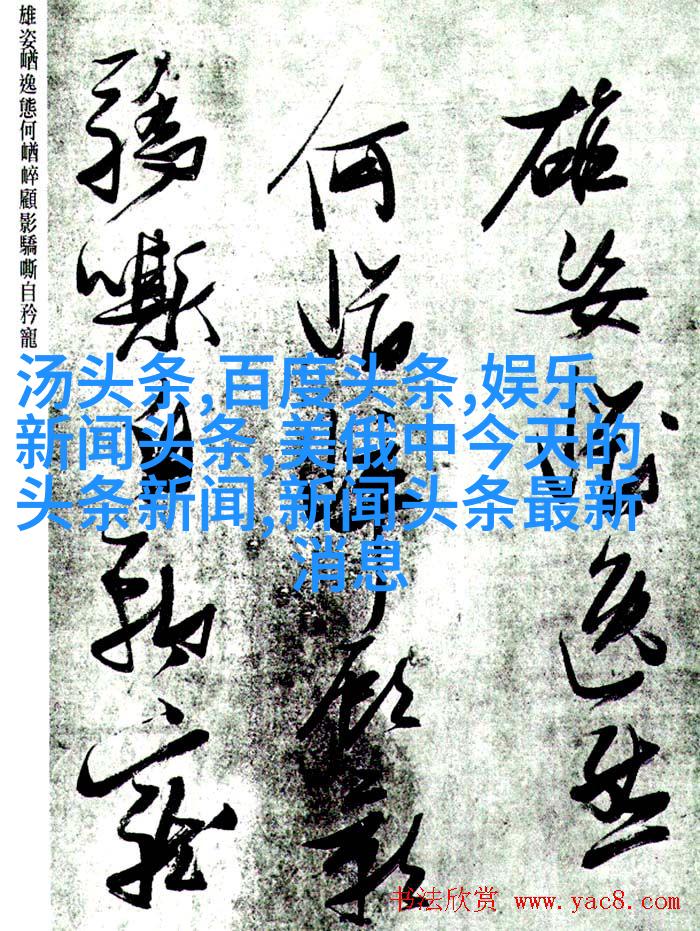 雄姿崷逸態
何崷崪顧影
驕嘶自矜寵
雄姿崷逸態何崷崪顧影驕嘶自矜寵
汤头条,百度头条,娱乐
新闻头条,美俄中今天的
头条新闻,新闻头条最新
消息
书法欣赏 www.yac8.com